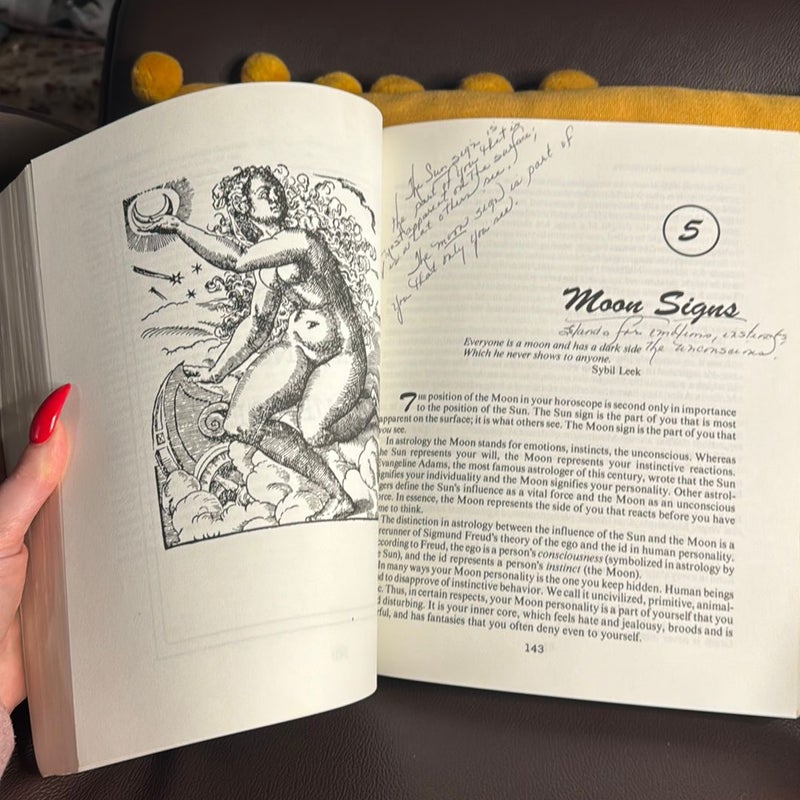 The Sun sign is
the part of you that is
most apparent on the surface;
is what others see.
The moon sign is part of
you that only you see.
5
Moon Signs
stands for emotions, instincts
the unconscious.
Everyone is a moon and has a dark side
Which he never shows to anyone.
Sybil Leek
The position of the Moon in your horoscope is second only in importance
to the position of the Sun. The Sun sign is the part of you that is most
apparent on the surface; it is what others see. The Moon sign is the part of you that
you see.
In astrology the Moon stands for emotions, instincts, the unconscious. Whereas
he Sun represents your will, the Moon represents your instinctive reactions.
Evangeline Adams, the most famous astrologer of this century, wrote that the Sun
ignifies your individuality and the Moon signifies your personality. Other astrol-
gers define the Sun's influence as a vital force and the Moon as an unconscious
orce. In essence, the Moon represents the side of you that reacts before you have
me to think.
The distinction in astrology between the influence of the Sun and the Moon is a
rerunner of Sigmund Freud's theory of the ego and the id in human personality.
ccording to Freud, the ego is a person's consciousness (symbolized in astrology by
e Sun), and the id represents a person's instinct (the Moon).
In many ways your Moon personality is the one you keep hidden. Human beings
d to disapprove of instinctive behavior. We call it uncivilized, primitive, animal-
c. Thus, in certain respects, your Moon personality is a part of yourself that you
d disturbing. It is your inner core, which feels hate and jealousy, broods and is
ful, and has fantasies that you often deny even to yourself.
143